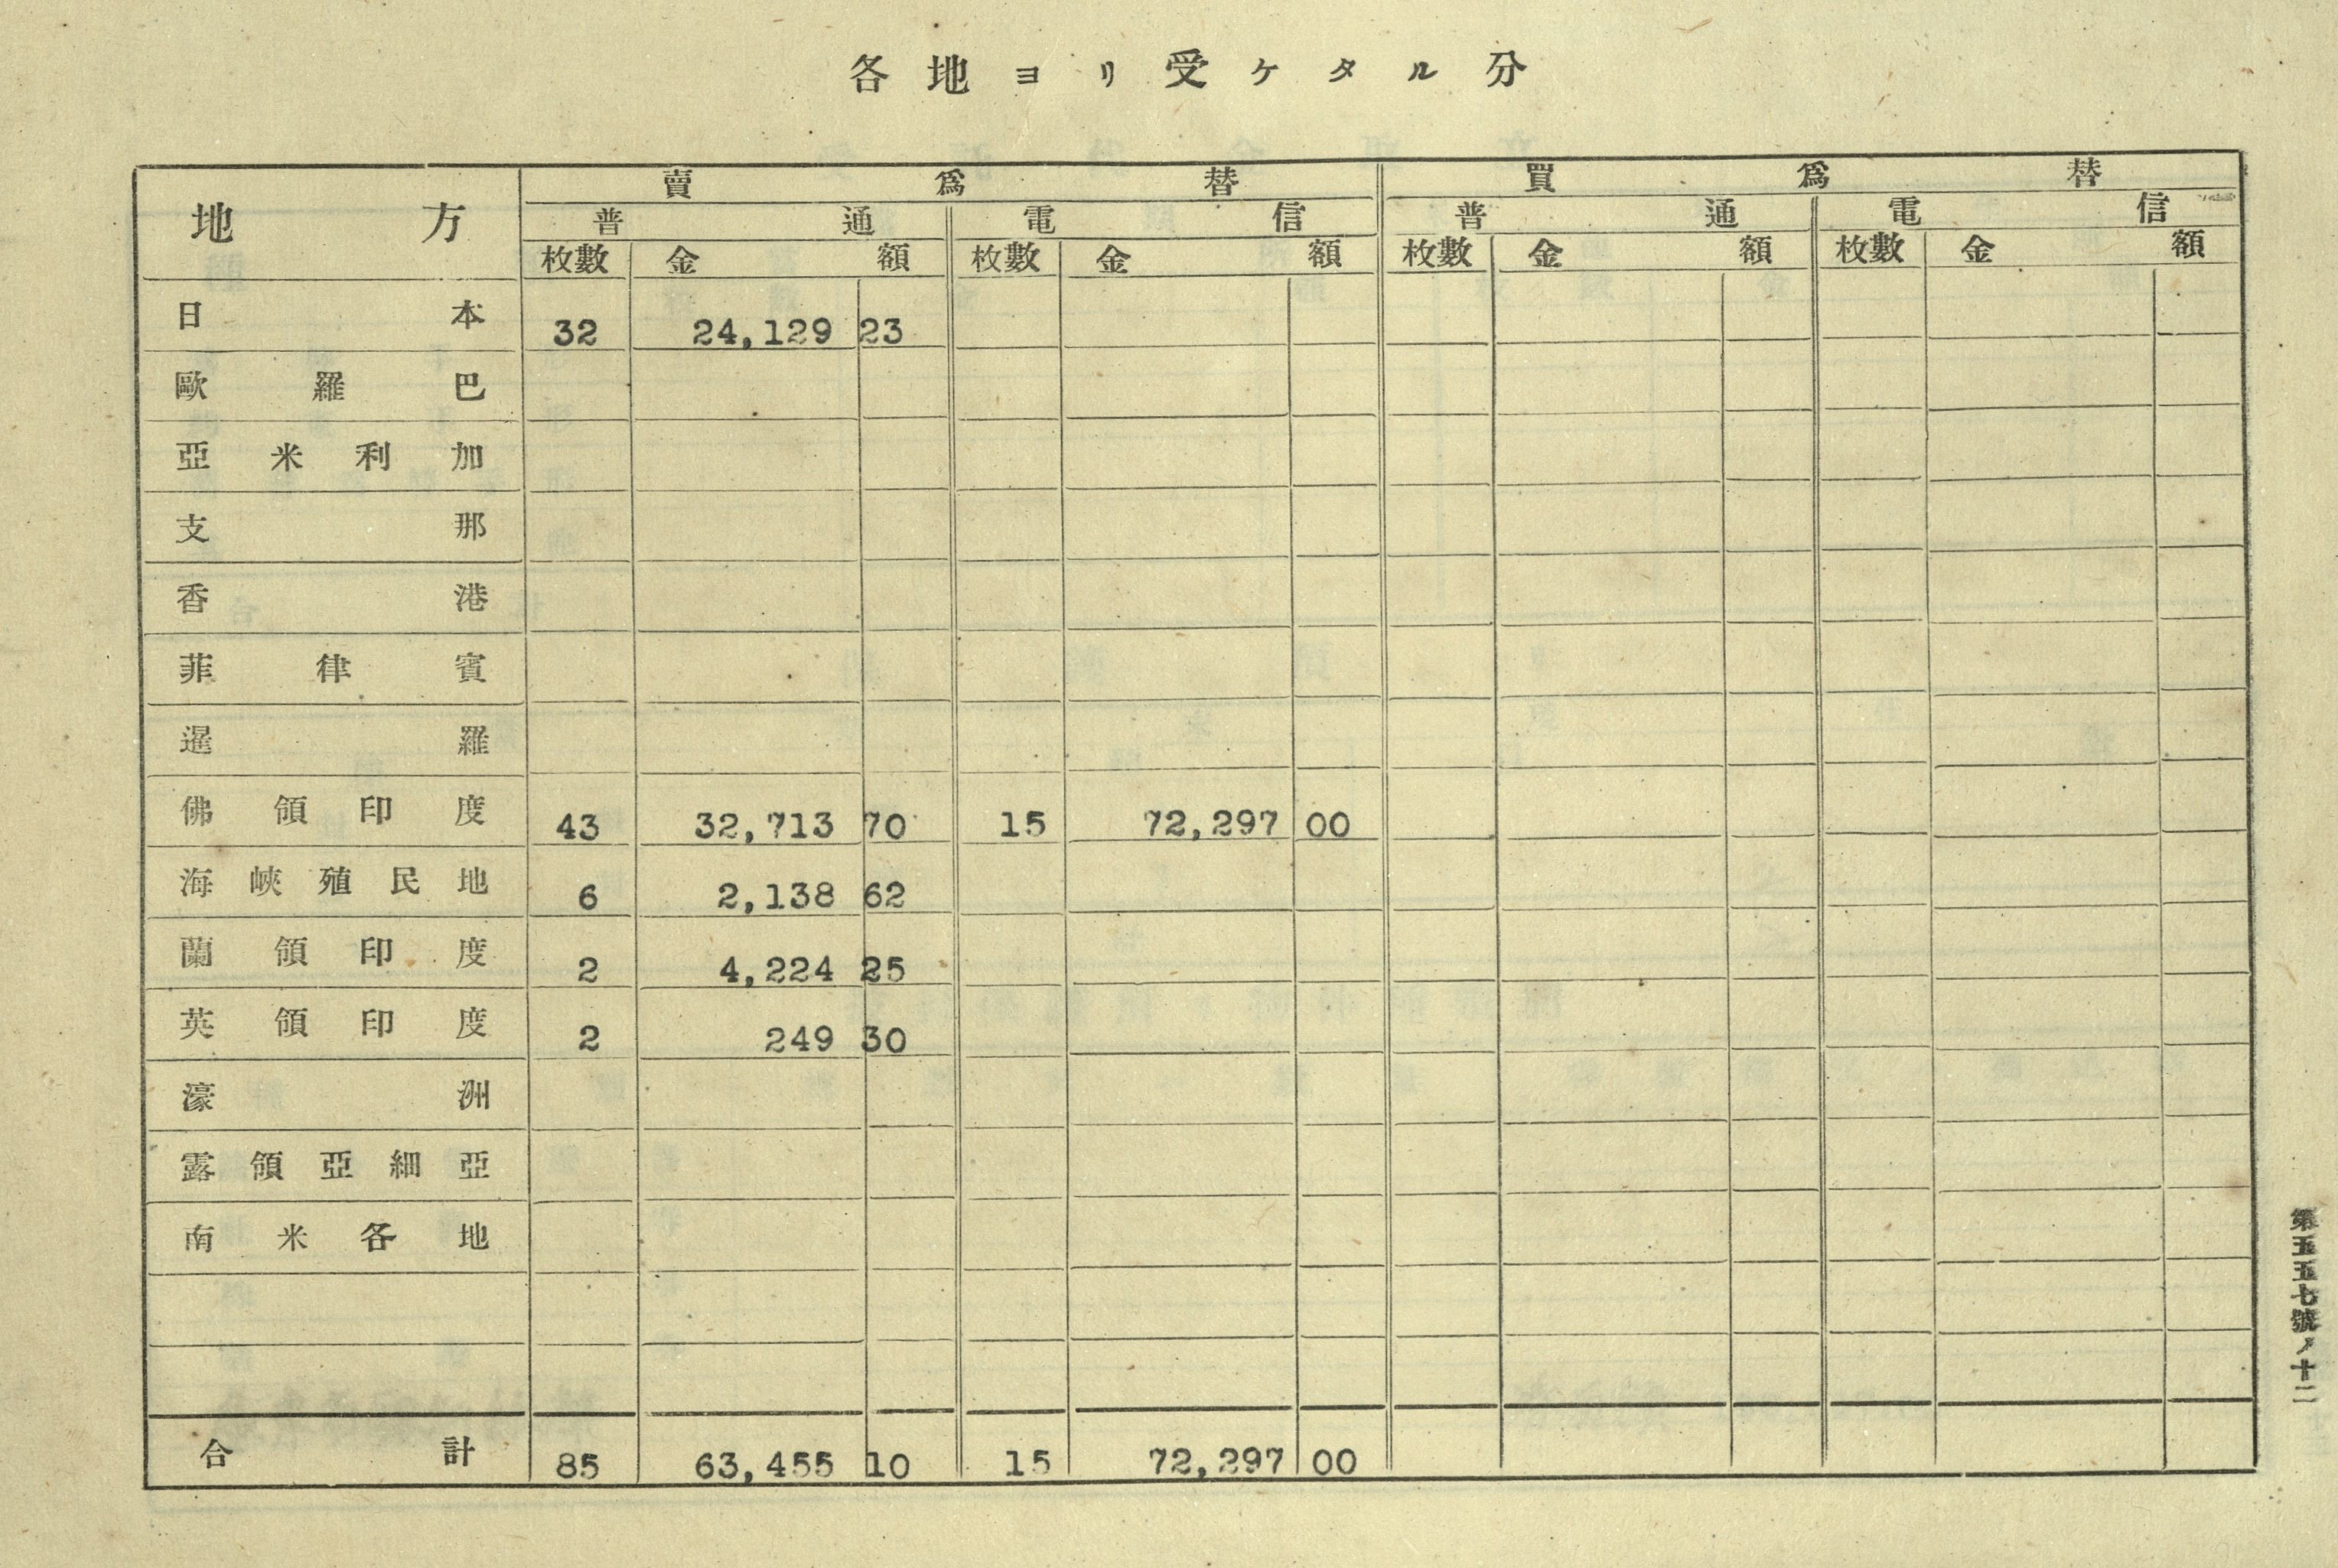 各地ヨリ受ケタル分
地方 賣爲替 買爲替
普通 電信 普通 電信
枚數 金額 枚數 金額 枚數 金額 枚數 金額
日本 32 24,129 23
歐羅巴
亞米利加
支那
香港
菲律賓
暹羅
佛領印度 43 32,713 70 15 72,297 00
海峽殖民地 6 2,138 62
蘭領印度 2 4,224 25
英領印度 2 249 30
濠洲
露領亞細亞
南米各地
合計 85 63,455 10 15 72,297 00
第五五七號ノ十二